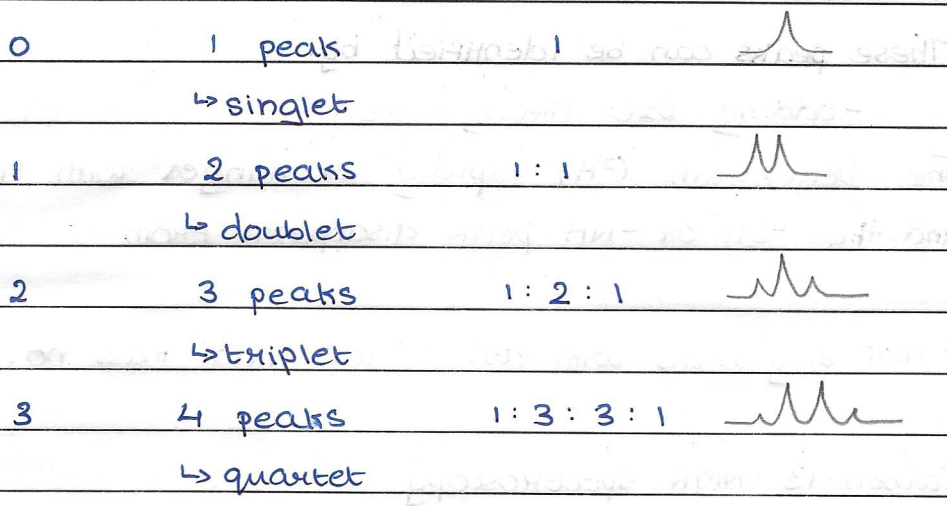 0 1 peak 1
↳ singlet
1 2 peaks 1 : 1
↳ doublet
2 3 peaks 1 : 2 : 1
↳ triplet
3 4 peaks 1 : 3 : 3 : 1
↳ quartet